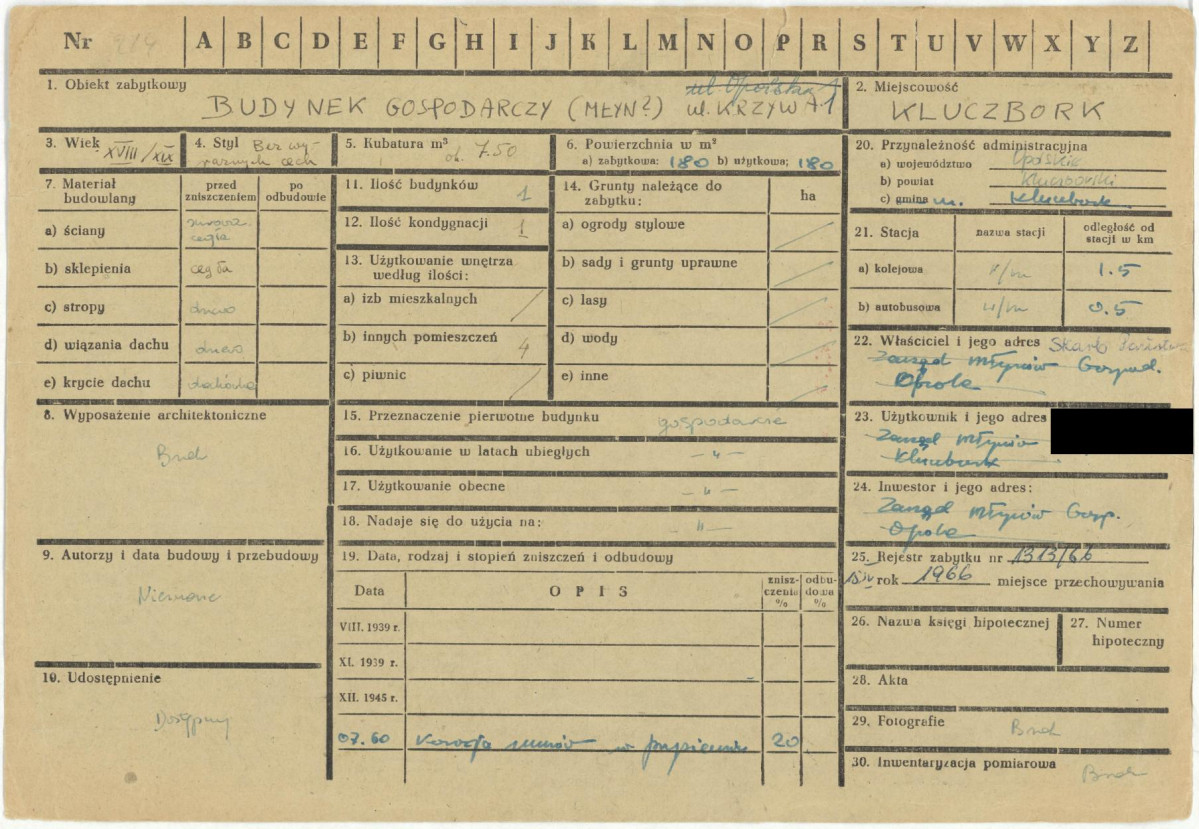 Nr 214 A B C D E F G H I J K L M N O P R S T U V W X Y Z
1. Obiekt zabytkowy
BUDYNEK GOSPODARCZY (MŁYN?) ul. Opolska ul. KRZYWA 1
2. Miejscowość
KLUCZBORK
3. Wiek XVIII/XIX
4. Styl Bez wy-
raznych cech
5. Kubatura m³
ok. 750
6. Powierzchnia w m²
a) zabytkowa: 180 b) użytkowa; 180
20. Przynależność administracyjna
a) województwo Opolskie
b) powiat Kluczborski
c) gmina m. Kluczbork
7. Materiał budowlany
przed zniszczeniem
po odbudowie
a) ściany cegła
b) sklepienia cegła
c) stropy drewno
d) wiązania dachu drewno
e) krycie dachu dachówka
8. Wyposażenie architektoniczne
Brak
9. Autorzy i data budowy i przebudowy
Nieznane
10. Udostępnienie
Dostępny
11. Ilość budynków 1
12. Ilość kondygnacji 1
13. Użytkowanie wnętrza
według ilości:
a) izb mieszkalnych /
b) innych pomieszczeń 4
c) piwnic /
14. Grunty należące do
zabytku: ha
a) ogrody stylowe
b) sady i grunty uprawne
c) lasy
d) wody
e) inne
15. Przeznaczenie pierwotne budynku gospodarcze
16. Użytkowanie w latach ubiegłych – " –
17. Użytkowanie obecne – " –
18. Nadaje się do użycia na: – " –
19. Data, rodzaj i stopień zniszczeń i odbudowy
Data OPIS znisz-
czenia % odbu-
dowa %
VIII. 1939 r.
XI. 1939 r.
XII. 1945 r.
07.60 Korozja murów w przyziemiu 20
21. Stacja nazwa stacji odległość od
stacji w km
a) kolejowa n/m 1.5
b) autobusowa n/m 0.5
22. Właściciel i jego adres Skarb Państwa
Zarząd Młynów Gospod.
Opole
23. Użytkownik i jego adres
Zarząd Młynów
Kluczbork
24. Inwestor i jego adres:
Zarząd Młynów Gosp.
Opole
25. Rejestr zabytku nr 1313/66
rok 1966 miejsce przechowywania
26. Nazwa księgi hipotecznej
27. Numer
hipoteczny
28. Akta
29. Fotografie Brak
30. Inwentaryzacja pomiarowa Brak